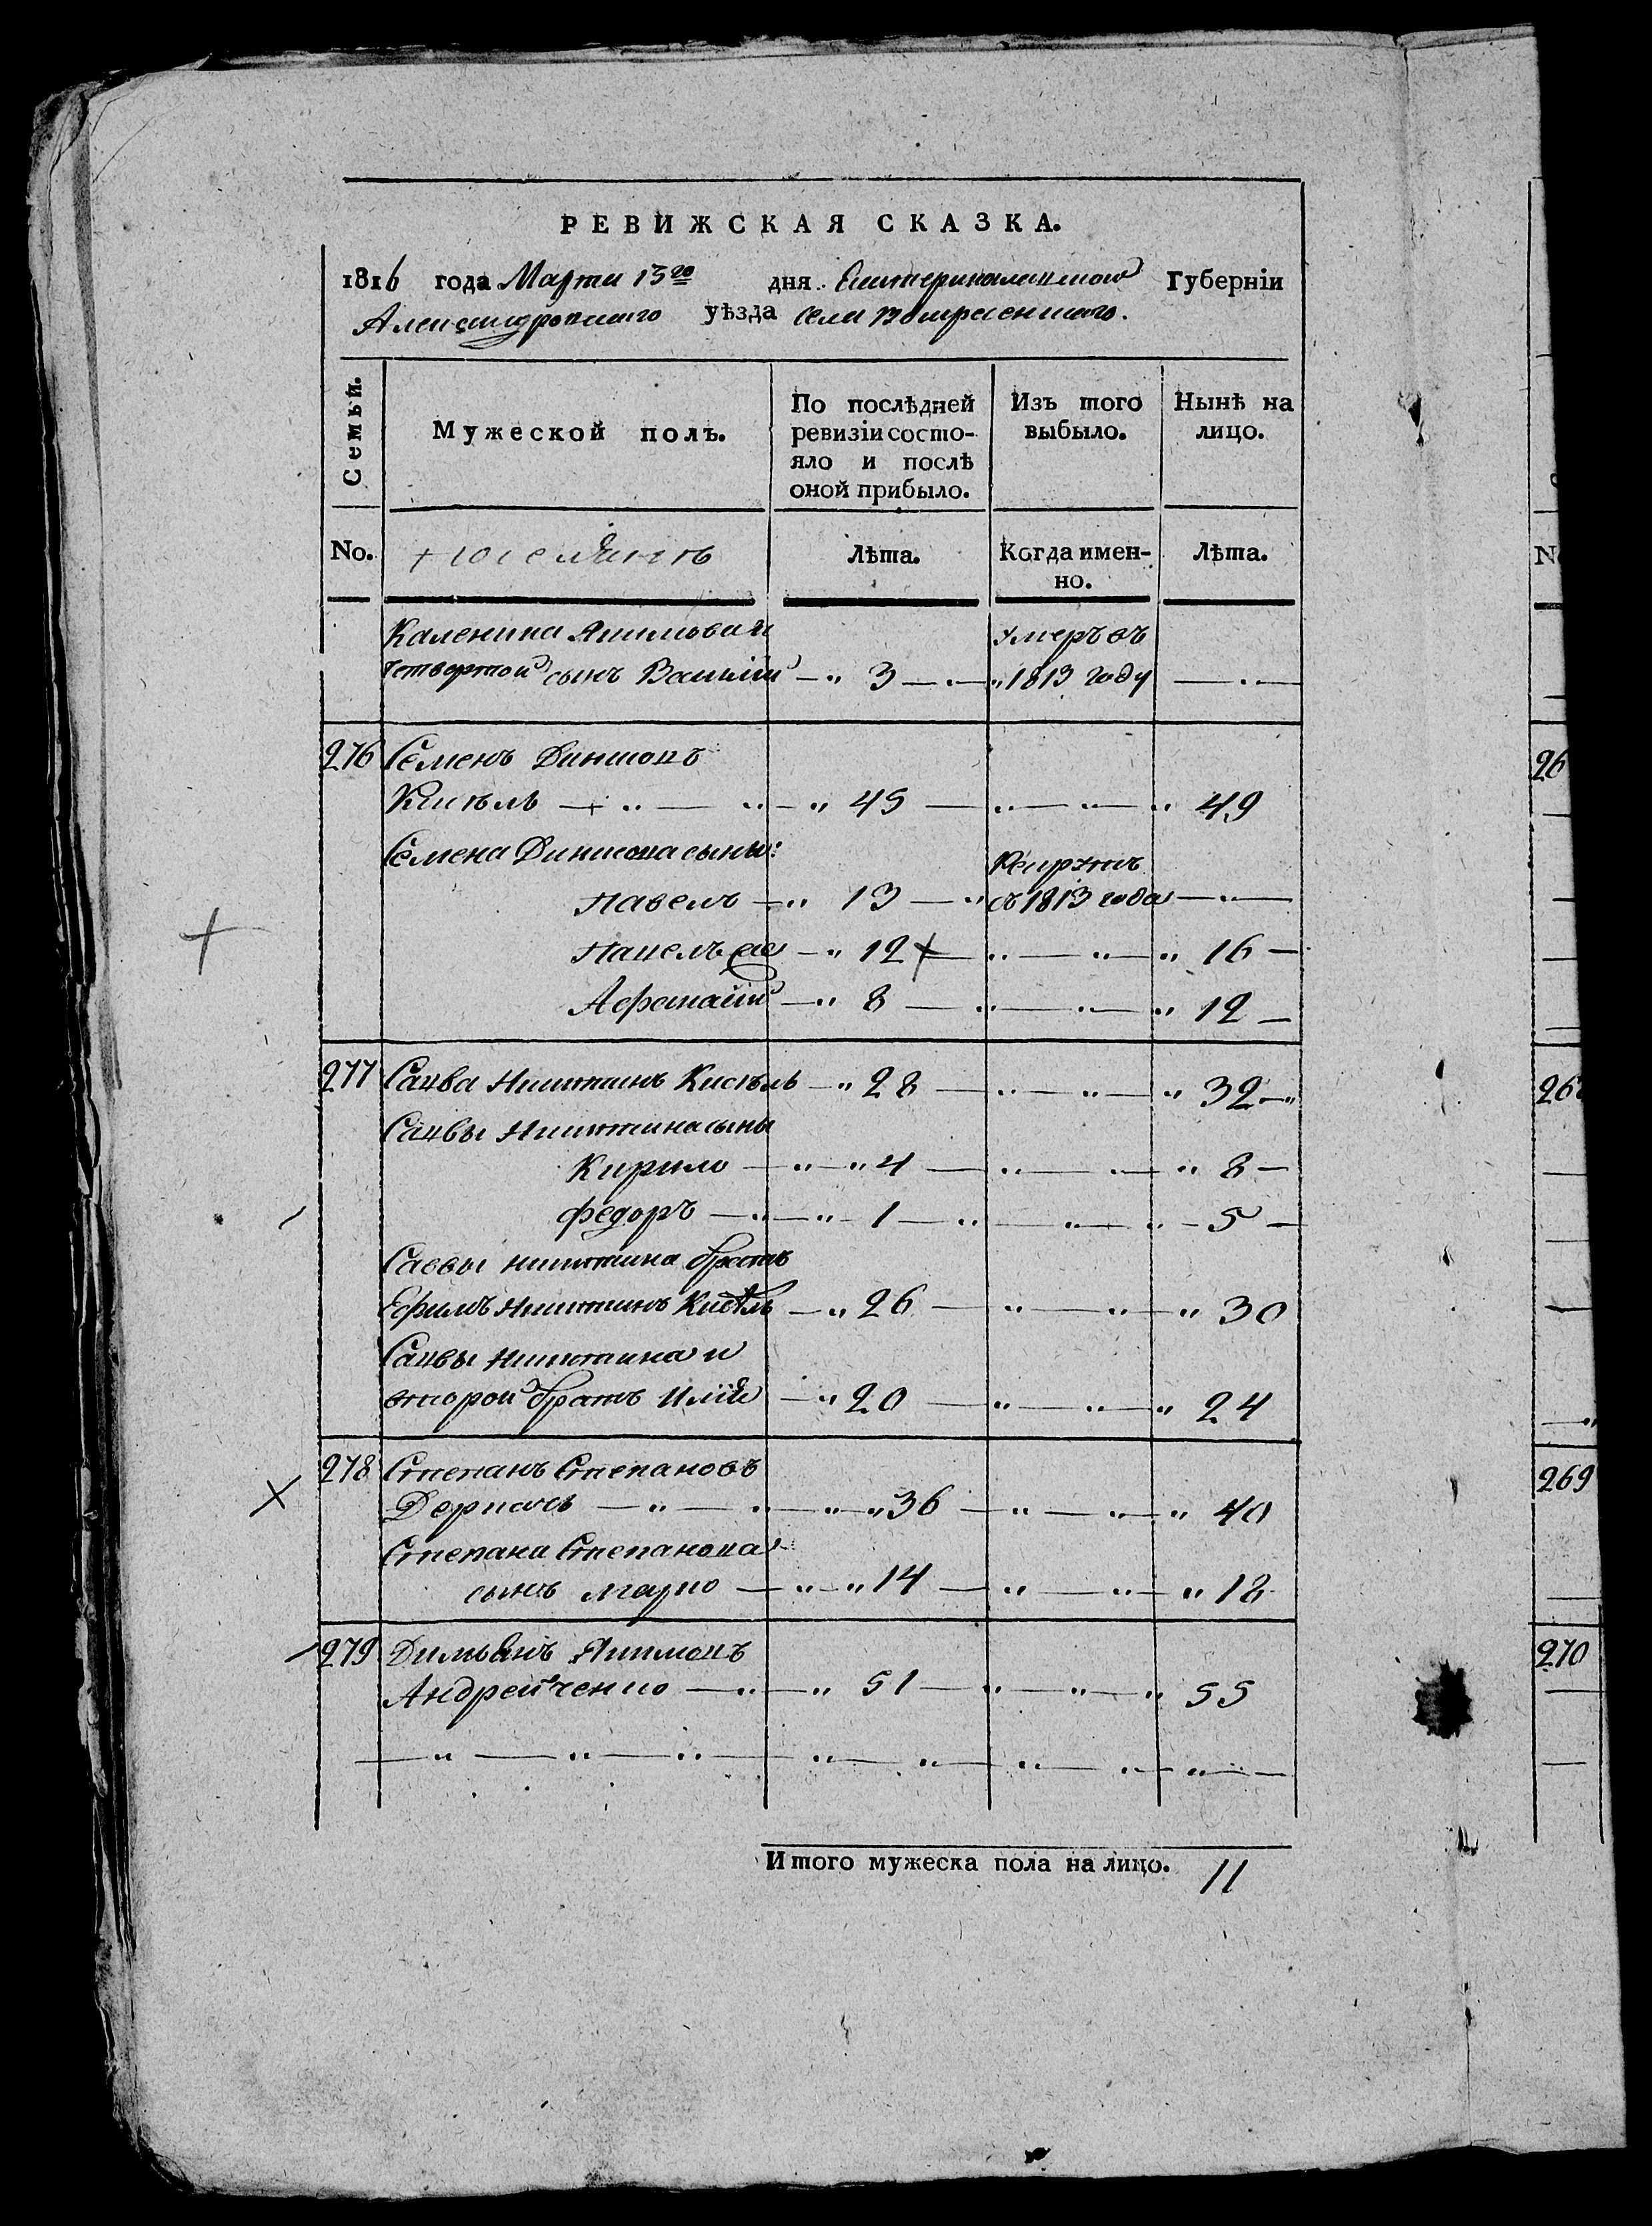 РЕВИЖСКАЯ СКАЗКА.
1816 года Марта 13го дня Екатеринославской Губерніи
Александровскаго уѣзда села Воскресенскаго.
Семьи.
Мужеской полъ.
По послѣдней ревизіи состо-
яло и послѣ
оной прибыло.
Изъ того
выбыло.
Нынѣ на
лицо.
No.
Лѣта.
Когда имен-
но.
Лѣта.
Каленика Якимова и Умеръ въ
четвертой сынъ Василій 3 1813 году
276 Семенъ Динисовъ
Кисѣль 45 49
Семена Динисова сыны: Рекрутъ
Павелъ 13 съ 1813 года
Павелъ же 12 16
Афанасій 8 12
277 Савва Никитинъ Кисѣль 28 32
Саввы Никитина сыны
Кирило 4 8
Федоръ 1 5
Саввы Никитина братъ
Ефимъ Никитинъ Кисѣль 26 30
Саввы Никитина и
второй братъ Илія 20 24
278 Степанъ Степановъ
36 40
Степана Степанова
сынъ Марко 14 18
279 Димьянъ Якимовъ
Андрейченко 51 55
Итого мужеска пола на лицо. 11
N
26
26
269
270